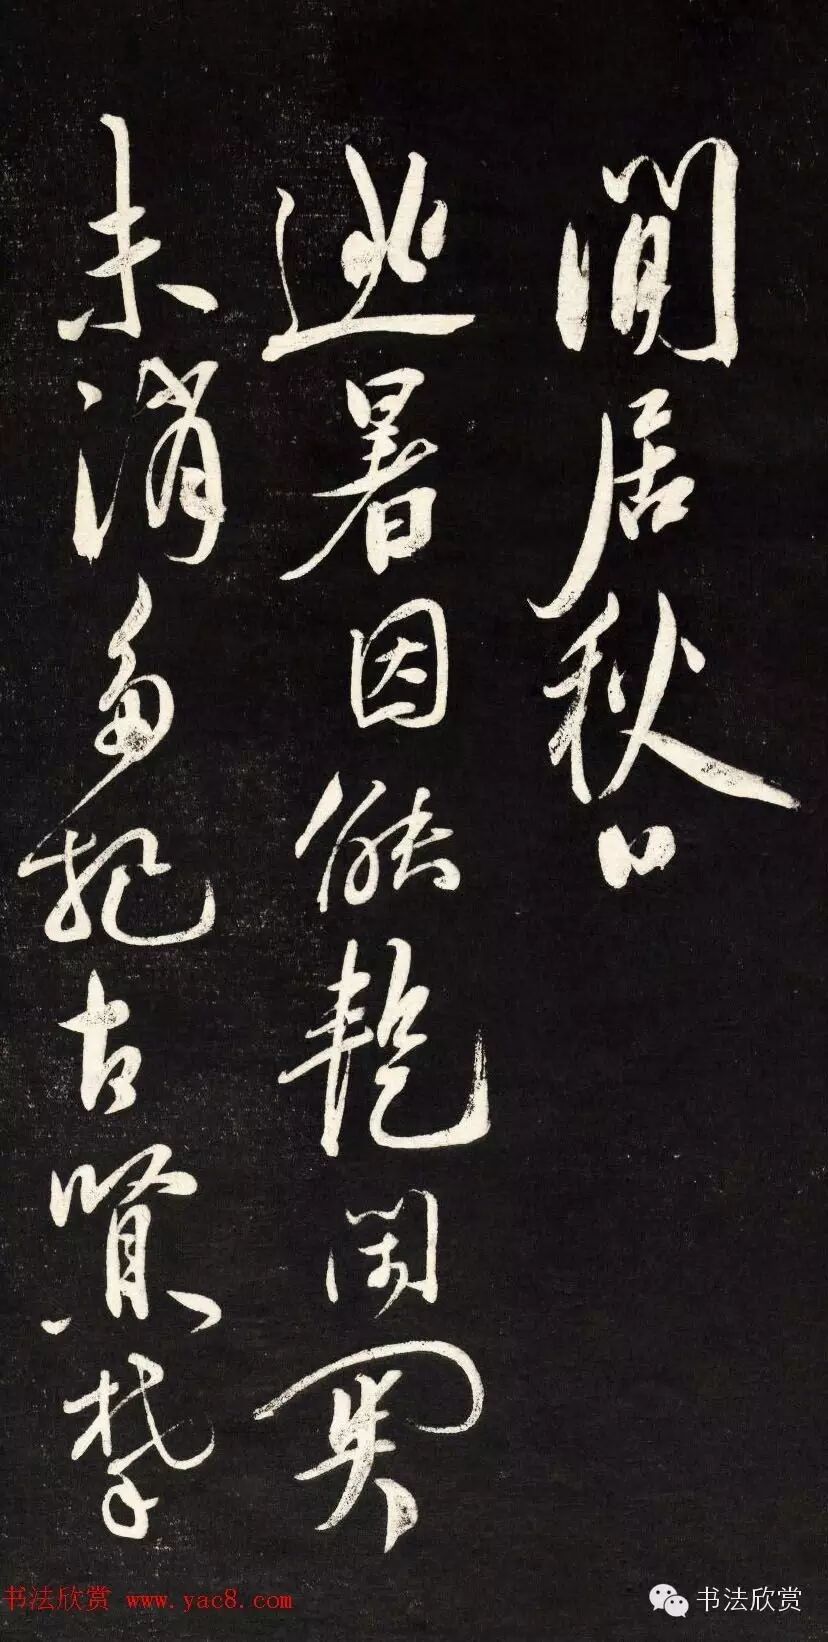 閒居秋日
逃暑因能暫閉關
未消多把古賢攀
书法欣赏 www.yac8.com
书法欣赏